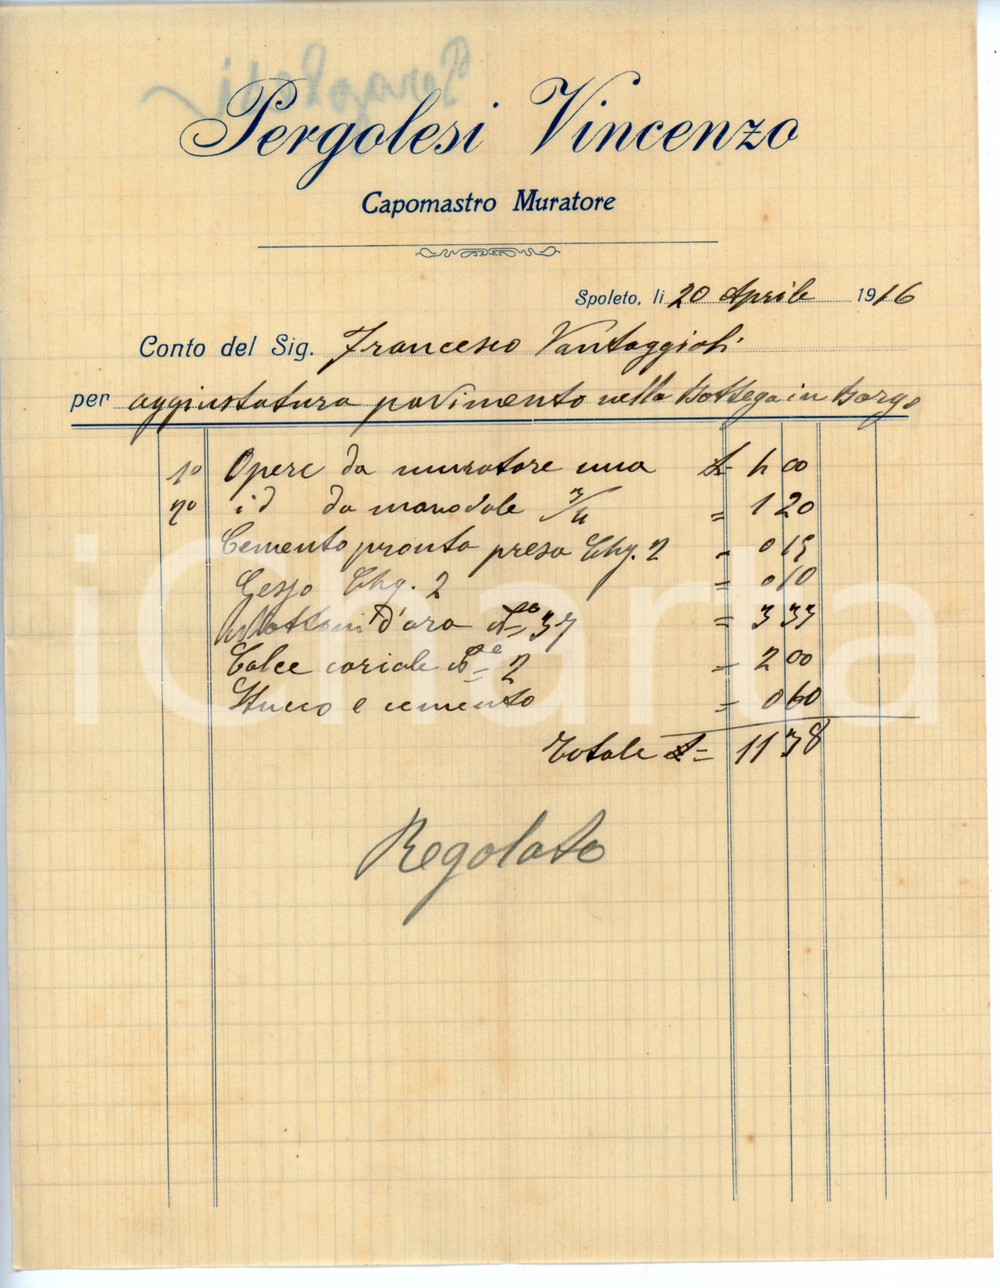 Pergolesi
Pergolesi Vincenzo
Capomastro Muratore
Spoleto, li 20 Aprile 1916
Conto del Sig. Francesco Vantaggioli
per aggiustatura pavimento nella Bottega in Borgo
1º Opere da muratore una £ 4 00
nº id da manovale 3/4 = 1 20
Cemento pronta presa Chg. 2 = 0 15
Gesso Chg. 2 = 0 10
Mattoni d'ara Nº 37 = 3 33
Calce coriale 2 = 2 00
Stucco e cemento = 0 60
Totale £ = 11 38
Regolato
iCharta